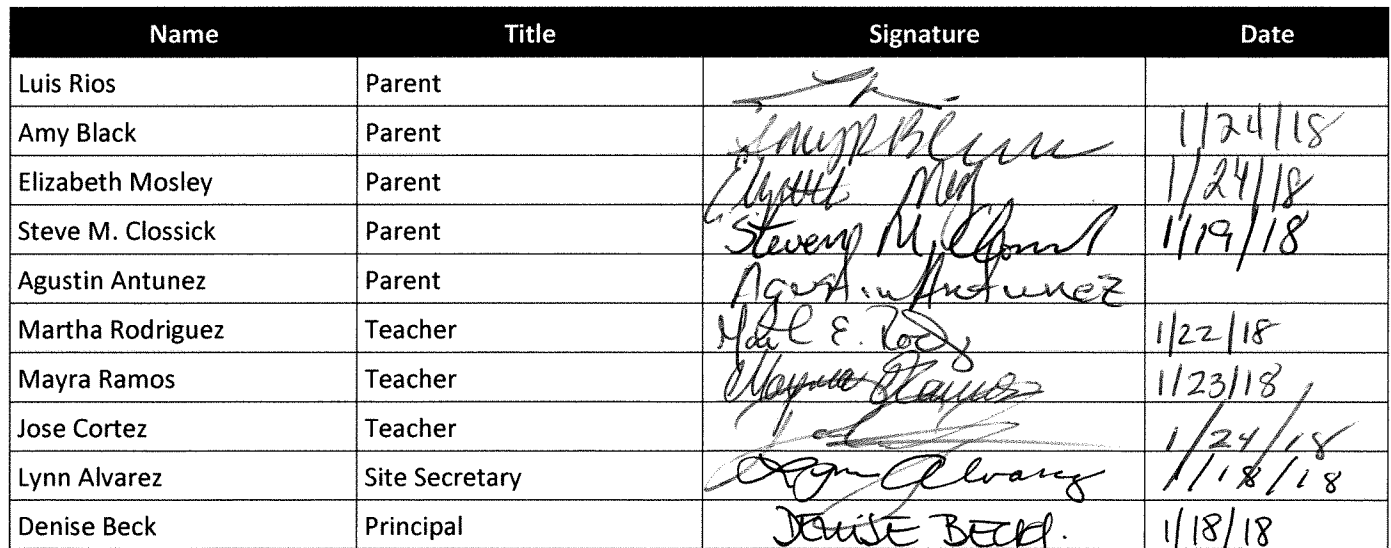 Name Title Signature Date
Luis Rios Parent
Amy Black Parent 1/24/18
Elizabeth Mosley Parent 1/24/18
Steve M. Clossick Parent Steven M. 1/19/18
Agustin Antunez Parent Agustin Antunez
Martha Rodriguez Teacher E. 1/22/18
Mayra Ramos Teacher Mayra Ramos 1/23/18
Jose Cortez Teacher 1/24/18
Lynn Alvarez Site Secretary Lynn Alvarez 1/18/18
Denise Beck Principal DENISE BECK. 1/18/18